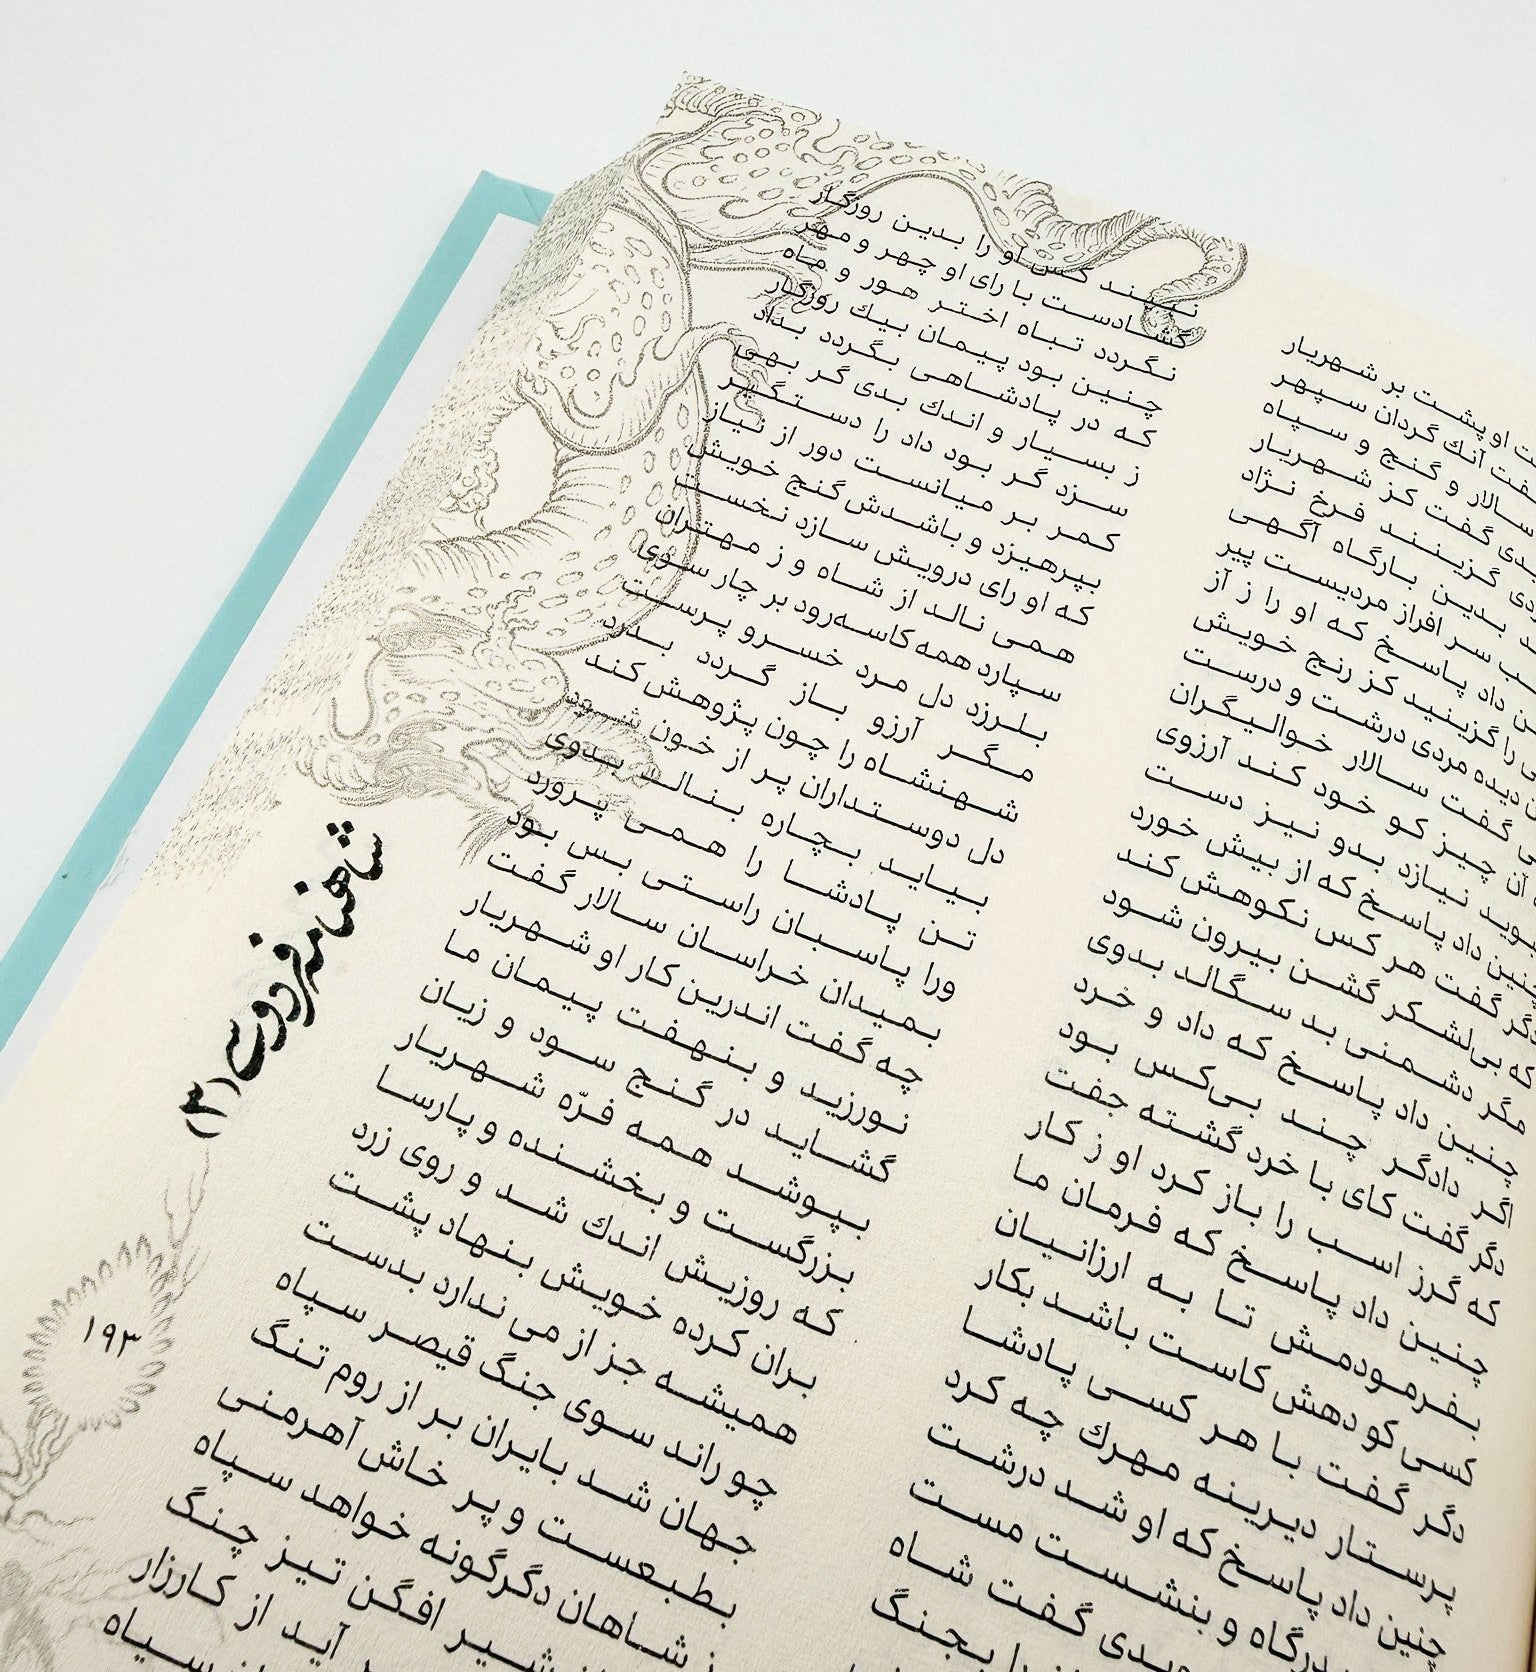 او پشت بر شهریار نبیند کس او را بدین روزگار
گفت آنك گردان سپهر گشادست با رای او چهر و مهر
سالار و گنج و سپاه نگردد تباه اختر هور و ماه
گفت کز شهریار چنین بود پیمان بیك روزگار
گزینند فرخ نژاد که در پادشاهی بگردد بداد
بدین بارگاه آگهی ز بسیار و اندك بدی گر بهی
سر افراز مردیست پیر سزد گر بود داد را دستگیر
داد پاسخ که او را ز آز کمر بر میانست دور از نیاز
را گزینید کز رنج خویش بپرهیزد و باشدش گنج خویش
دیده مردی درشت و درست که او رای درویش سازد نخست
گفت سالار خوالیگران همی نالد از شاه و ز مهتران
آن چیز کو خود کند آرزوی سپارد همه کاسه‌رود بر چار سوی
بوید نیازد بدو نیز دست بلرزد دل مرد خسرو پرست
چنین داد پاسخ که از بیش خورد مگر آرزو باز گردد بدرد
دگر گفت هر کس نکوهش کند شهنشاه را چون پژوهش کند
که بی‌لشکر گشن بیرون شود دل دوستداران پر از خون شود
مگر دشمنی بد سگالد بدوی بیاید بچاره بنالد بدوی
چنین داد پاسخ که داد و خرد تن پادشا را همی پرورد
اگر دادگر چند بی‌کس بود ورا پاسبان راستی بس بود
دگر گفت کای با خرد گشته جفت بمیدان خراسان سالار گفت
که گرز اسب را باز کرد او ز کار چه گفت اندرین کار او شهریار
چنین داد پاسخ که فرمان ما نورزید و بنهفت پیمان ما
بفرمودمش تا به ارزانیان گشاید در گنج سود و زیان
کسی کو دهش کاست باشد بکار بپوشد همه فرّه شهریار
دگر گفت با هر کسی پادشا بزرگست و بخشنده و پارسا
پرستار دیرینه مهرك چه کرد که روزیش اندك شد و روی زرد
چنین داد پاسخ که او شد درشت بران کرده خویش بنهاد پشت
درگاه و بنشست مست همیشه جز از می ندارد بدست
گفت شاه چو راند سوی جنگ قیصر سپاه
بجنگ جهان شد بایران بر از روم تنگ
بطبعست و پر خاش آهرمنی
شاهان دگرگونه خواهد سپاه
شیر افگن تیز چنگ
آید از کارزار
سپاه
شاهنامه فردوسی (۳)
۱۹۳